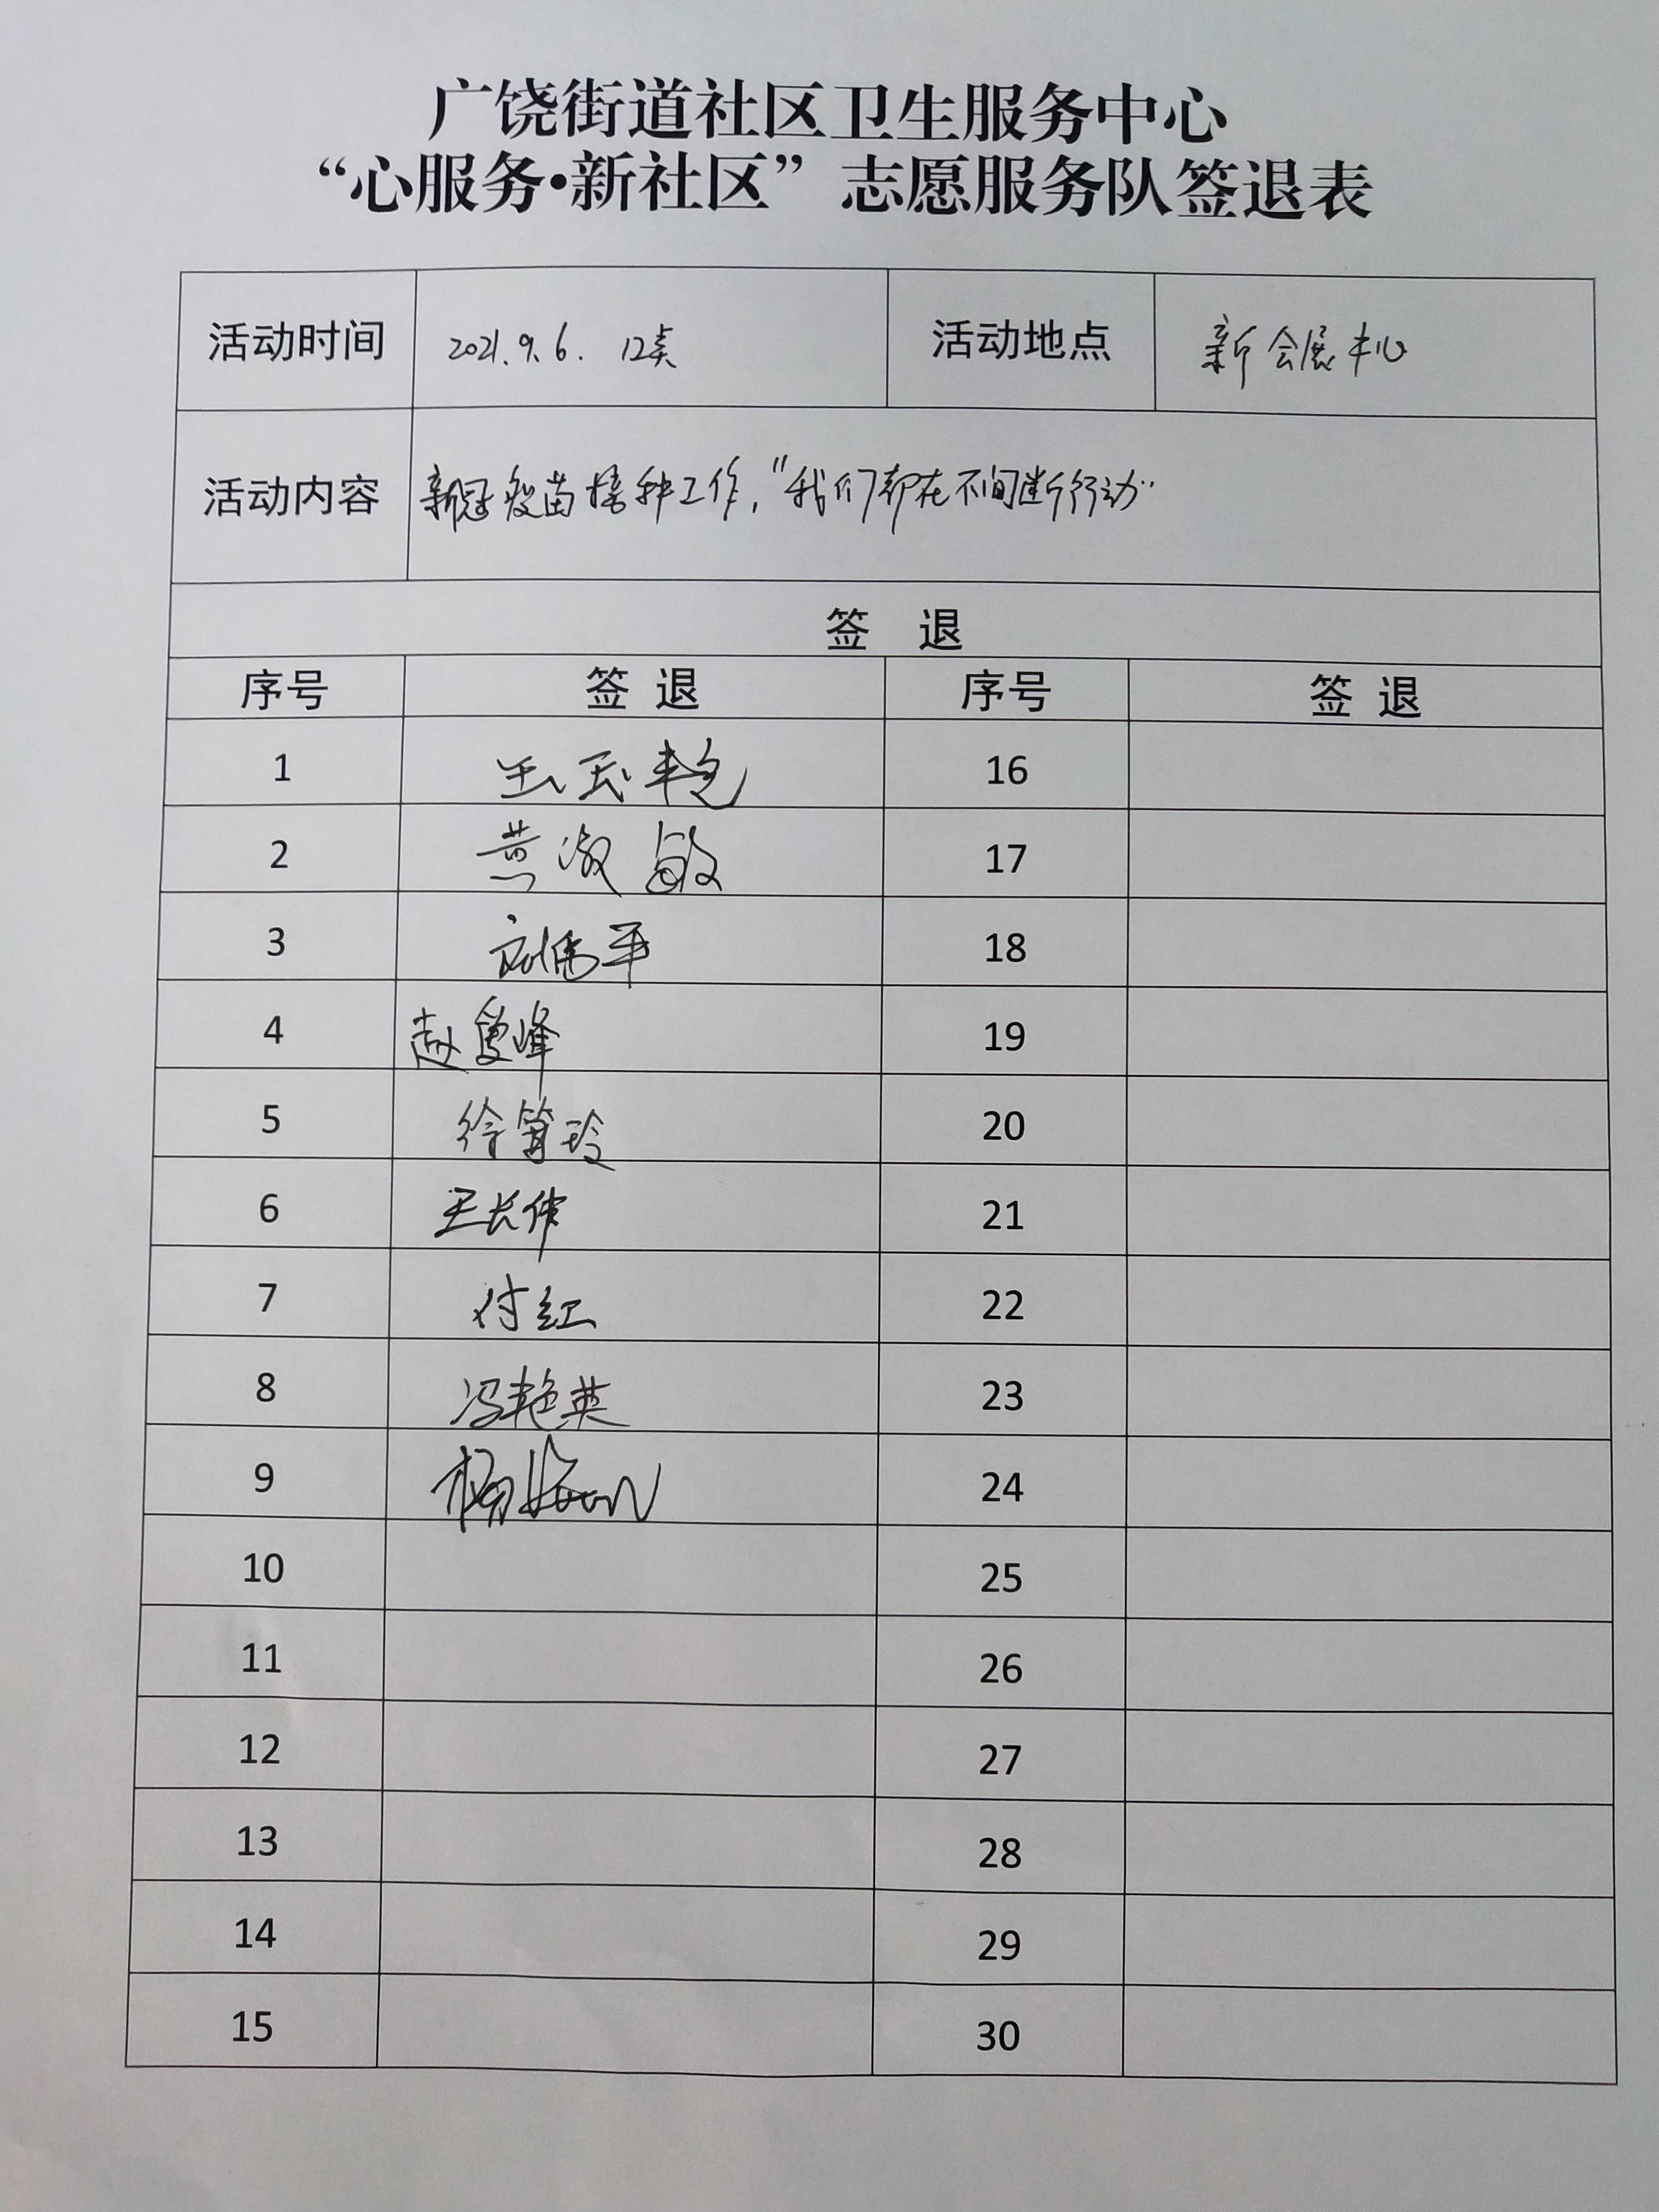 广饶街道社区卫生服务中心
“心服务•新社区”志愿服务队签退表
活动时间 2021.9.6. 12点 活动地点 新会展中心
活动内容 新冠疫苗接种工作,“我们都在不间断行动”
签 退
序号 签 退 序号 签 退
1 王玉艳 16
2 黄淑敏 17
3 刘伟平 18
4 赵曼峰 19
5 徐箐玲 20
6 王长伟 21
7 付红 22
8 冯艳英 23
9 杨 24
10 25
11 26
12 27
13 28
14 29
15 30